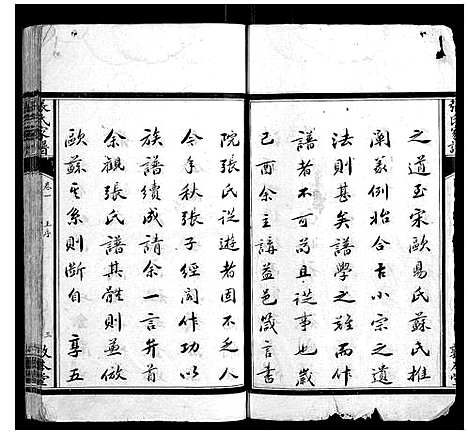 之道至宋歐陽氏蘇氏推
闡義例始合古小宗之遺
法則甚矣譜學之難而作
譜者不可苟且從事也歲
己酉余主講益邑箴言書
院張氏從遊者固不乏人
今年秋張子經閣作功以
族譜續成請余一言弁首
余觀張氏譜其體則並倣
歐蘇其系則斷自享五
張氏家譜
卷一
上序
三
敦本堂